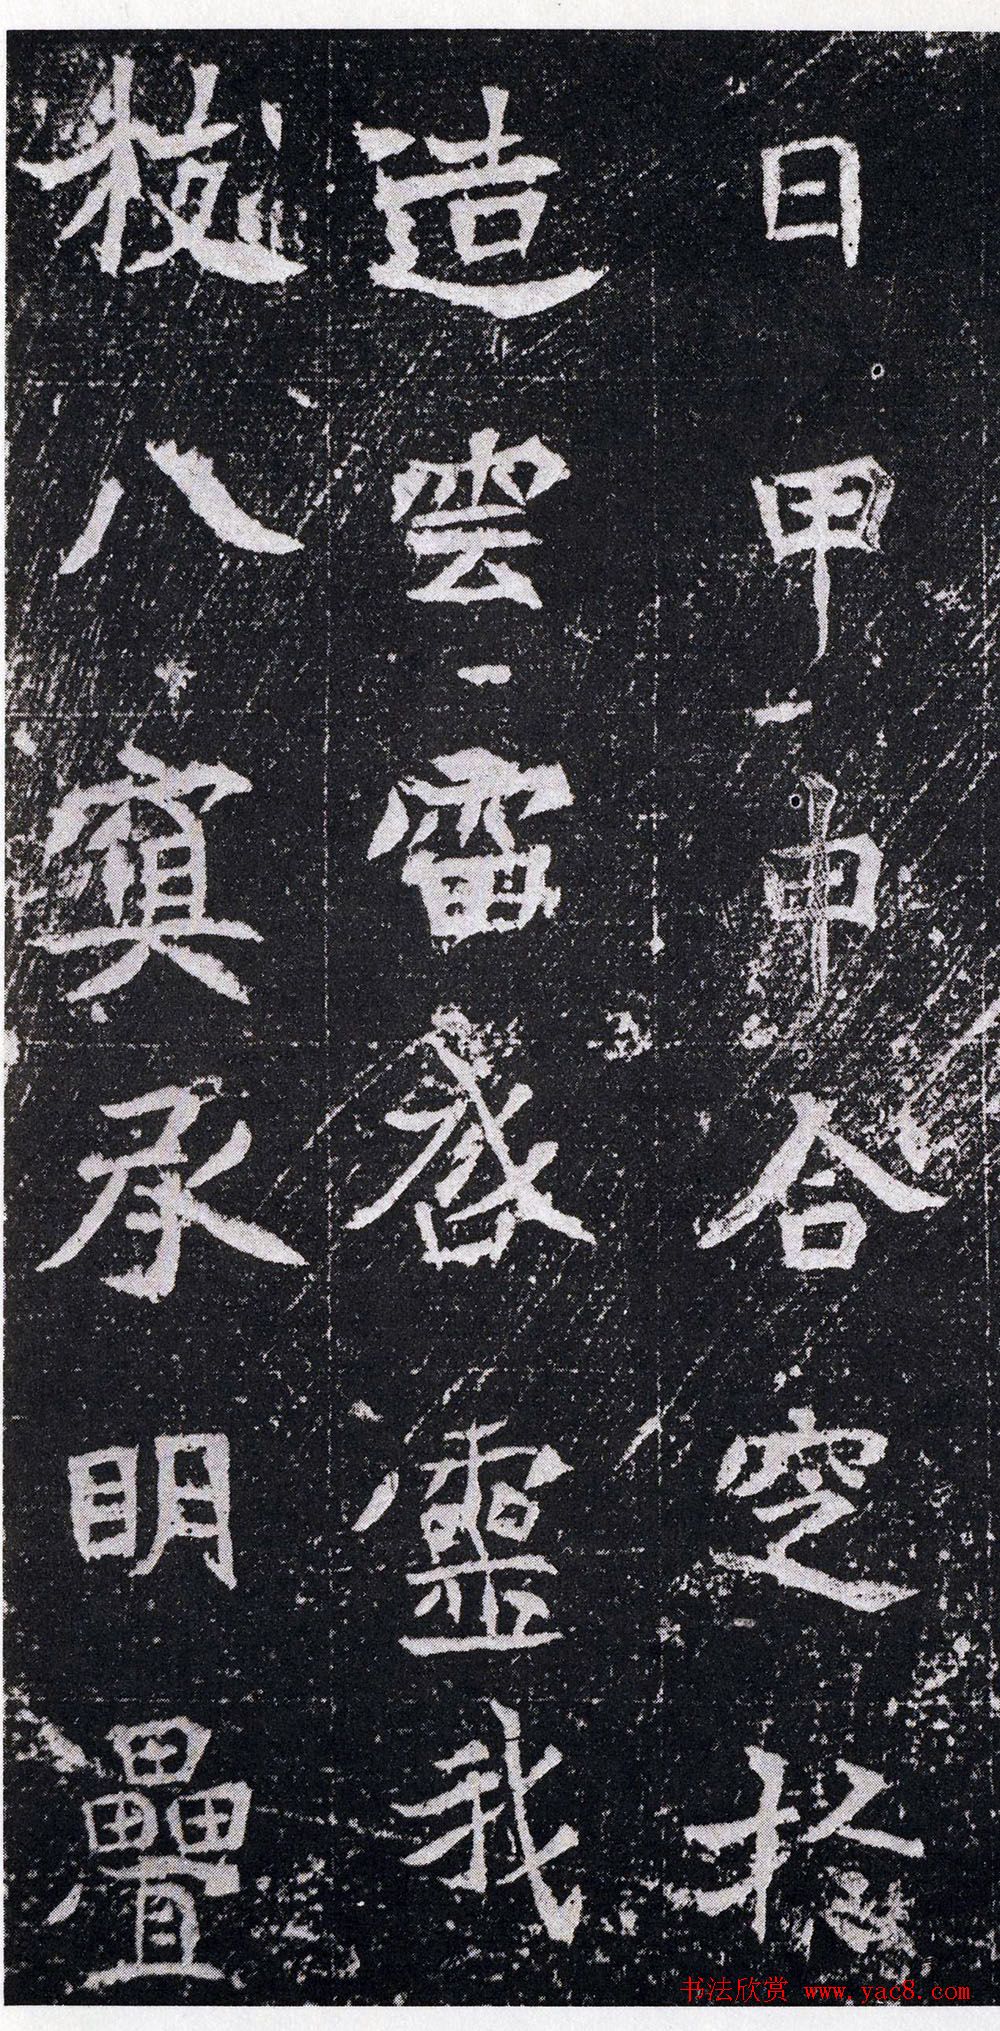 日甲申合空格
造雲雷靈我
八寘承明疊
书法欣赏 www.yac8.com